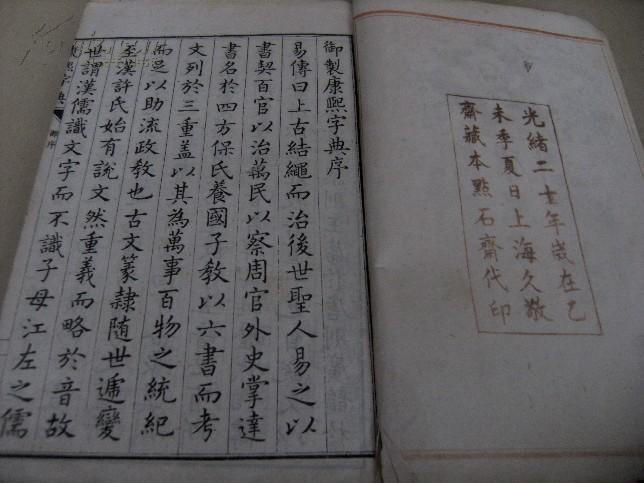 光緒二十一年歲在乙
未季夏日上海久敬
齋藏本點石齋代印
御製康熙字典序
易傳曰上古結繩而治後世聖人易之以
書契百官以治萬民以察周官外史掌達
書名於四方保氏養國子教以六書而考
文列於三重蓋以其為萬事百物之統紀
而足以助流政教也古文篆隸隨世遞變
至漢許氏始有說文然重義而略於音故
世謂漢儒識文字而不識子母江左之儒
熙字典
御序